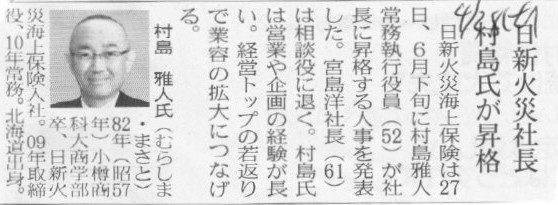 日新火災社長
村島氏が昇格
日新火災海上保険は27
日、6月下旬に村島雅人
常務執行役員（52）が社
長に昇格する人事を発表
した。宮島洋社長（61）
は相談役に退く。村島氏
は営業や企画の経験が長
い。経営トップの若返り
で業容の拡大につなげ
る。
村島 雅人氏（むらしま
・まさと）
82年（昭57
年）小樽商
科大商学部
卒、日新火
災海上保険入社。09年取締
役、10年常務。北海道出身。